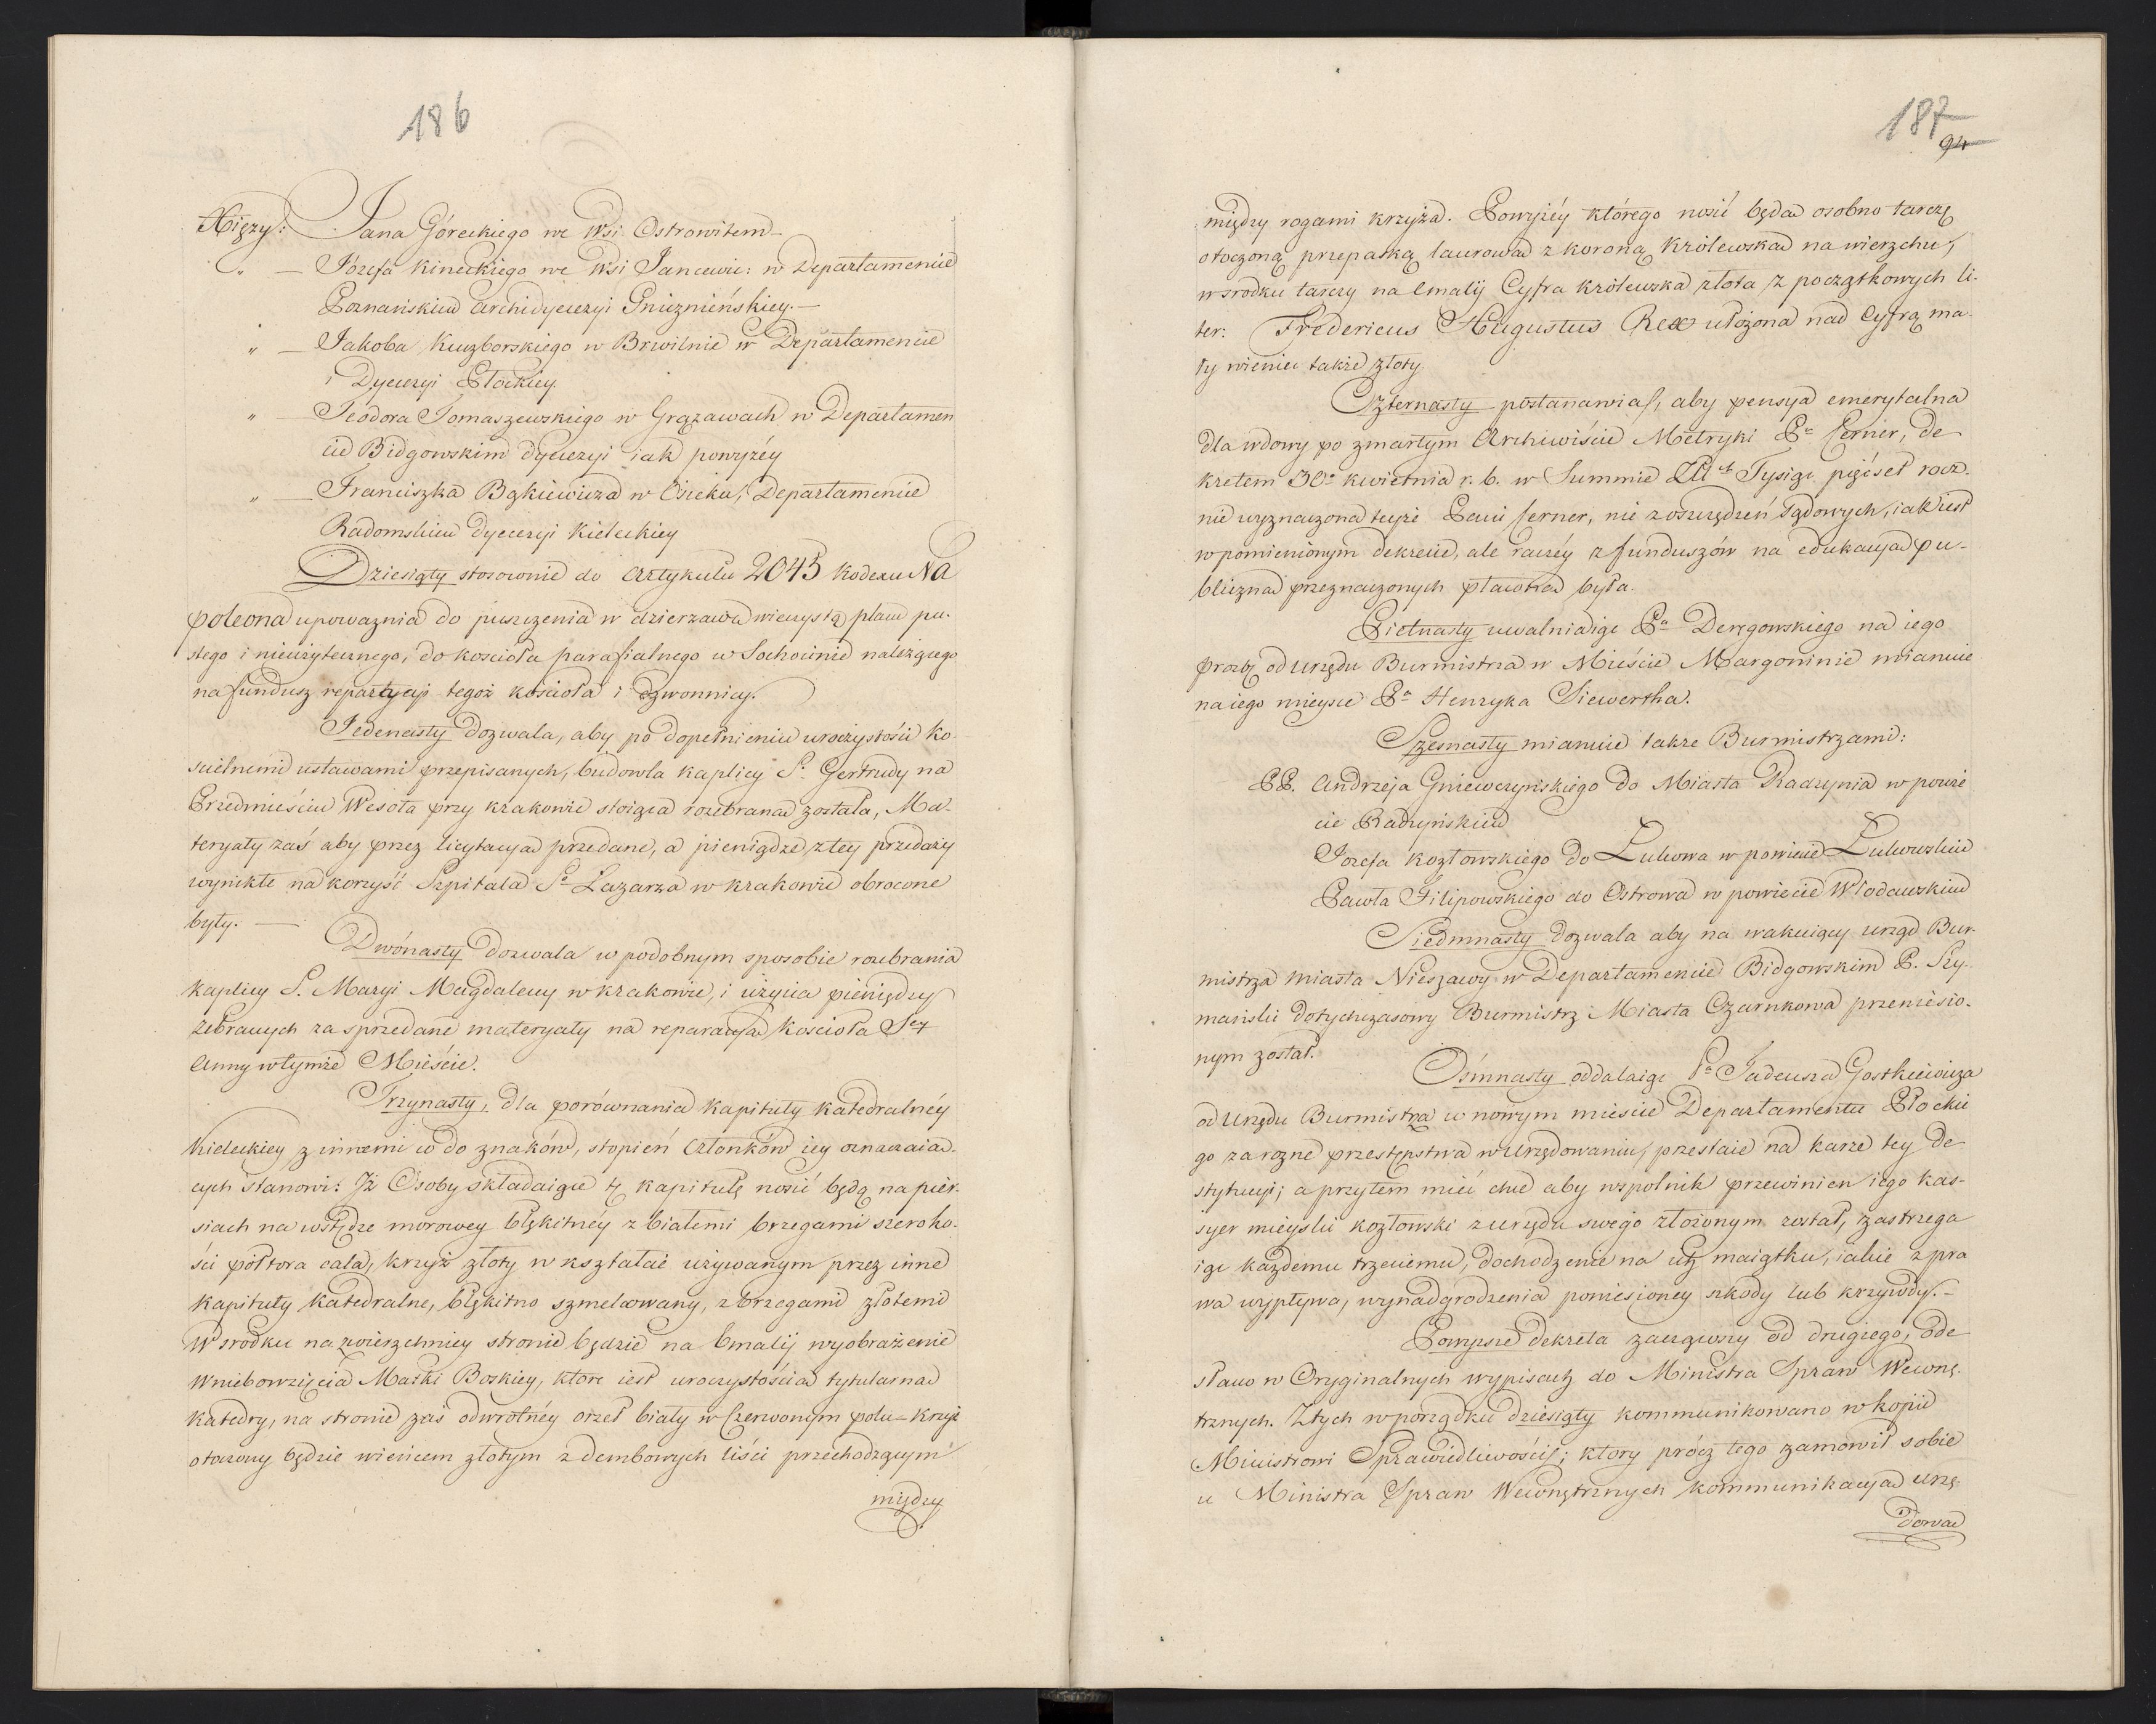 186
Xięży: Jana Góreckiego we Wsi Ostrowitem
„ — Józefa Kineckiego we Wsi Jancewie: w Departamencie
Poznańskim Archidyecezyi Gnieznieńskiey. —
„ — Jakoba Kuczborskiego w Brwilnie w Departamencie
i Dyecezyi Płockiey
„ — Teodora Tomaszewskiego w Grążawach w Departamen
cie Bidgowskim dyecezyi iak powyżéy
„ — Franciszka Bąkiewicza w Osieku, Departamencie
Radomskim Dyecezyi Kieleckiey
Dziesiąty stosownie do Artykułu 2045 Kodexu Na
poleona upoważnia do puszczenia w dzierzawą wieczystą placu pu-
stego i nieużytecznego, do kościoła parafialnego w Sochocinie należącego
na fundusz reparacyi tegoż kościoła i dzwonnicy.
Jedenasty Dozwala, aby po dopełnieniu uroczystości Ko-
scielnemi ustawami przepisanych, budowla kaplicy S. Gertrudy na
Przedmieściu Wesoła przy Krakowie stoiąca rozebraną została, Ma-
teryały zaś aby przez licytacyą przedane, a pieniądze z tey przedaży
wynikłe na korzyść Szpitala Sº Łazarza w Krakowie obrocone
były. —
Dwónasty Dozwala w podobnym sposobie rozebrania
kaplicy S. Maryi Magdaleny w Krakowie, i użycia pieniędzy
zebranych za sprzedane materyały na reparacyą Kościoła Sey
Anny w tymże Mieście.
Trzynasty, Dla porównania Kapituły Katedralnéy
Kieleckiey z innemi co do znaków, stopień Członków iey oznaczaią-
cych stanowi: Iż Osoby składaiące tę kapitułę nosić będą na pier-
siach na wstędze morowey błękitnéy z białemi brzegami szeroko-
ści półtora cala, krzyż złoty w kształcie używanym przez inne
Kapituły Katedralne, błękitno szmelcowany, z brzegami złotemi
W srodku na zwierzchniey stronie będzie na Emalij wyobrażenie
Wniebowzięcia Matki Boskiey, które iest uroczystością tytularną
Katedry, na stronie zaś odwrotnéy orzeł biały w Czerwonym polu — Krzyż
otoczony będzie wieńcem złotym z dembowych liści przechodzącym
między
187
94
między rogami krzyża. Powyżéy którego nosić będą osobno tarczę
otoczoną przepaską laurową z koroną Królewską na wierzchu,
w srodku tarczy na Emalij Cyfra Królewska złota z początkowych li-
ter: Fredericus Augustus Rex ułożona nad Cyfrą ma-
ły wieniec także złoty
Czternasty postanawia, aby pensya emerytalna
dla wdowy po zmarłym Archiwiście Metryki Pº Cerner, de
kretem 30º kwietnia r. b. w Summie Złch Tysiąc pięćset rocz-
nie wyznaczona teyże Pani Cerner, nie z oszczędzeń Sądowych, iak iest
w pomienionym dekrecie, ale raczéy z funduszów na edukacyą pu-
bliczną przeznaczonych płaconą była.
Pietnasty uwalniaiąc Pª Deręgowskiego na iego
prozbę od Urzędu Burmistrza w Mieście Margoninie mianuie
na iego mieysce Pª Henryka Siewertha.
Szesnasty mianuie także Burmistrzami:
PP. Andrzeja Gniewczyńskiego do Miasta Radzynia w powie
cie Radzyńskim
Jozefa Kozłowskiego do Łukowa w powiecie Łukowskim
Pawła Filipowskiego do Ostrowa w powiecie Włodawskim
Siedmnasty Dozwala aby na wakuiący urząd Bur-
mistrza Miasta Nieszawy w Departamencie Bidgowskim P. Szy-
mański dotychczasowy Burmistrz Miasta Czarnkowa przeniesio-
nym został.
Ośmnasty oddalaiąc Pª Tadeusza Gostkiewicza
od Urzędu Burmistrza w nowym mieście Departamentu Płockie
go za rozne przestępstwa w Urzędowaniu, przestaie na karze tey De-
stytucyi; a przytem mieć chce aby wspolnik przewinien iego Kas-
syer mieyski Kozłowski z urzędu swego złożonym został, zastrzega
iąc każdemu trzeciemu, dochodzenie na ich maiątku, iakie z pra
wa wypływa, wynadgrodzenia poniesioney szkody lub krzywdy. —
Powyższe Dekreta zacząwszy od drugiego, Ode
słano w Oryginalnych wypisach do Ministra Spraw Wewnę-
trznych. Z tych w porządku dziesiąty kommunikowano w kopii
Ministrowi Sprawiedliwości; ktory prócz tego zamowił sobie
u Ministra Spraw Wewnętrznych kommunikacyą Urzę-
dową